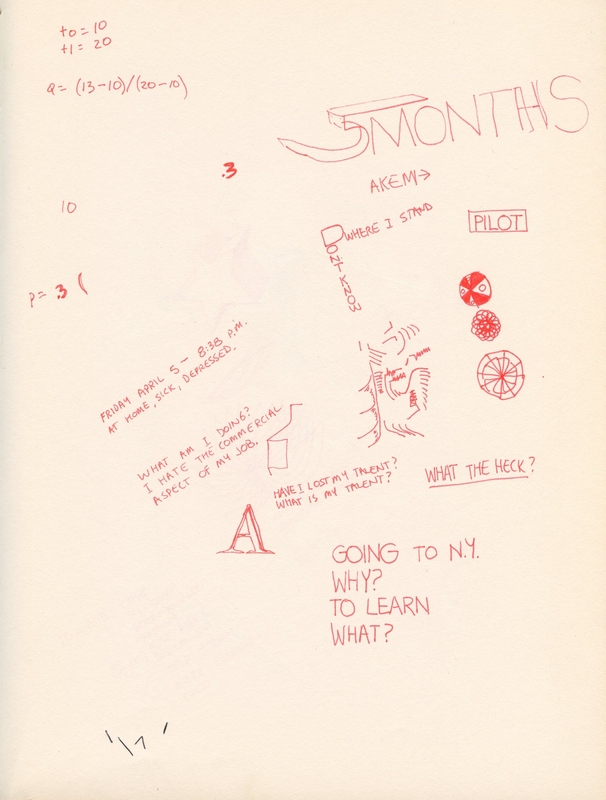 t0 = 10
t1 = 20
a = (13-10)/(20-10)
5 MONTHS
.3
AKEM→
10
DONT KNOW
WHERE I STAND
PILOT
p = .3 (
FRIDAY APRIL 5 - 8:38 P.M.
AT HOME, SICK, DEPRESSED.
WHAT AM I DOING?
I HATE THE COMMERCIAL
ASPECT OF MY JOB.
HAVE I LOST MY TALENT?
WHAT IS MY TALENT?
WHAT THE HECK?
A
GOING TO N.Y.
WHY?
TO LEARN
WHAT?